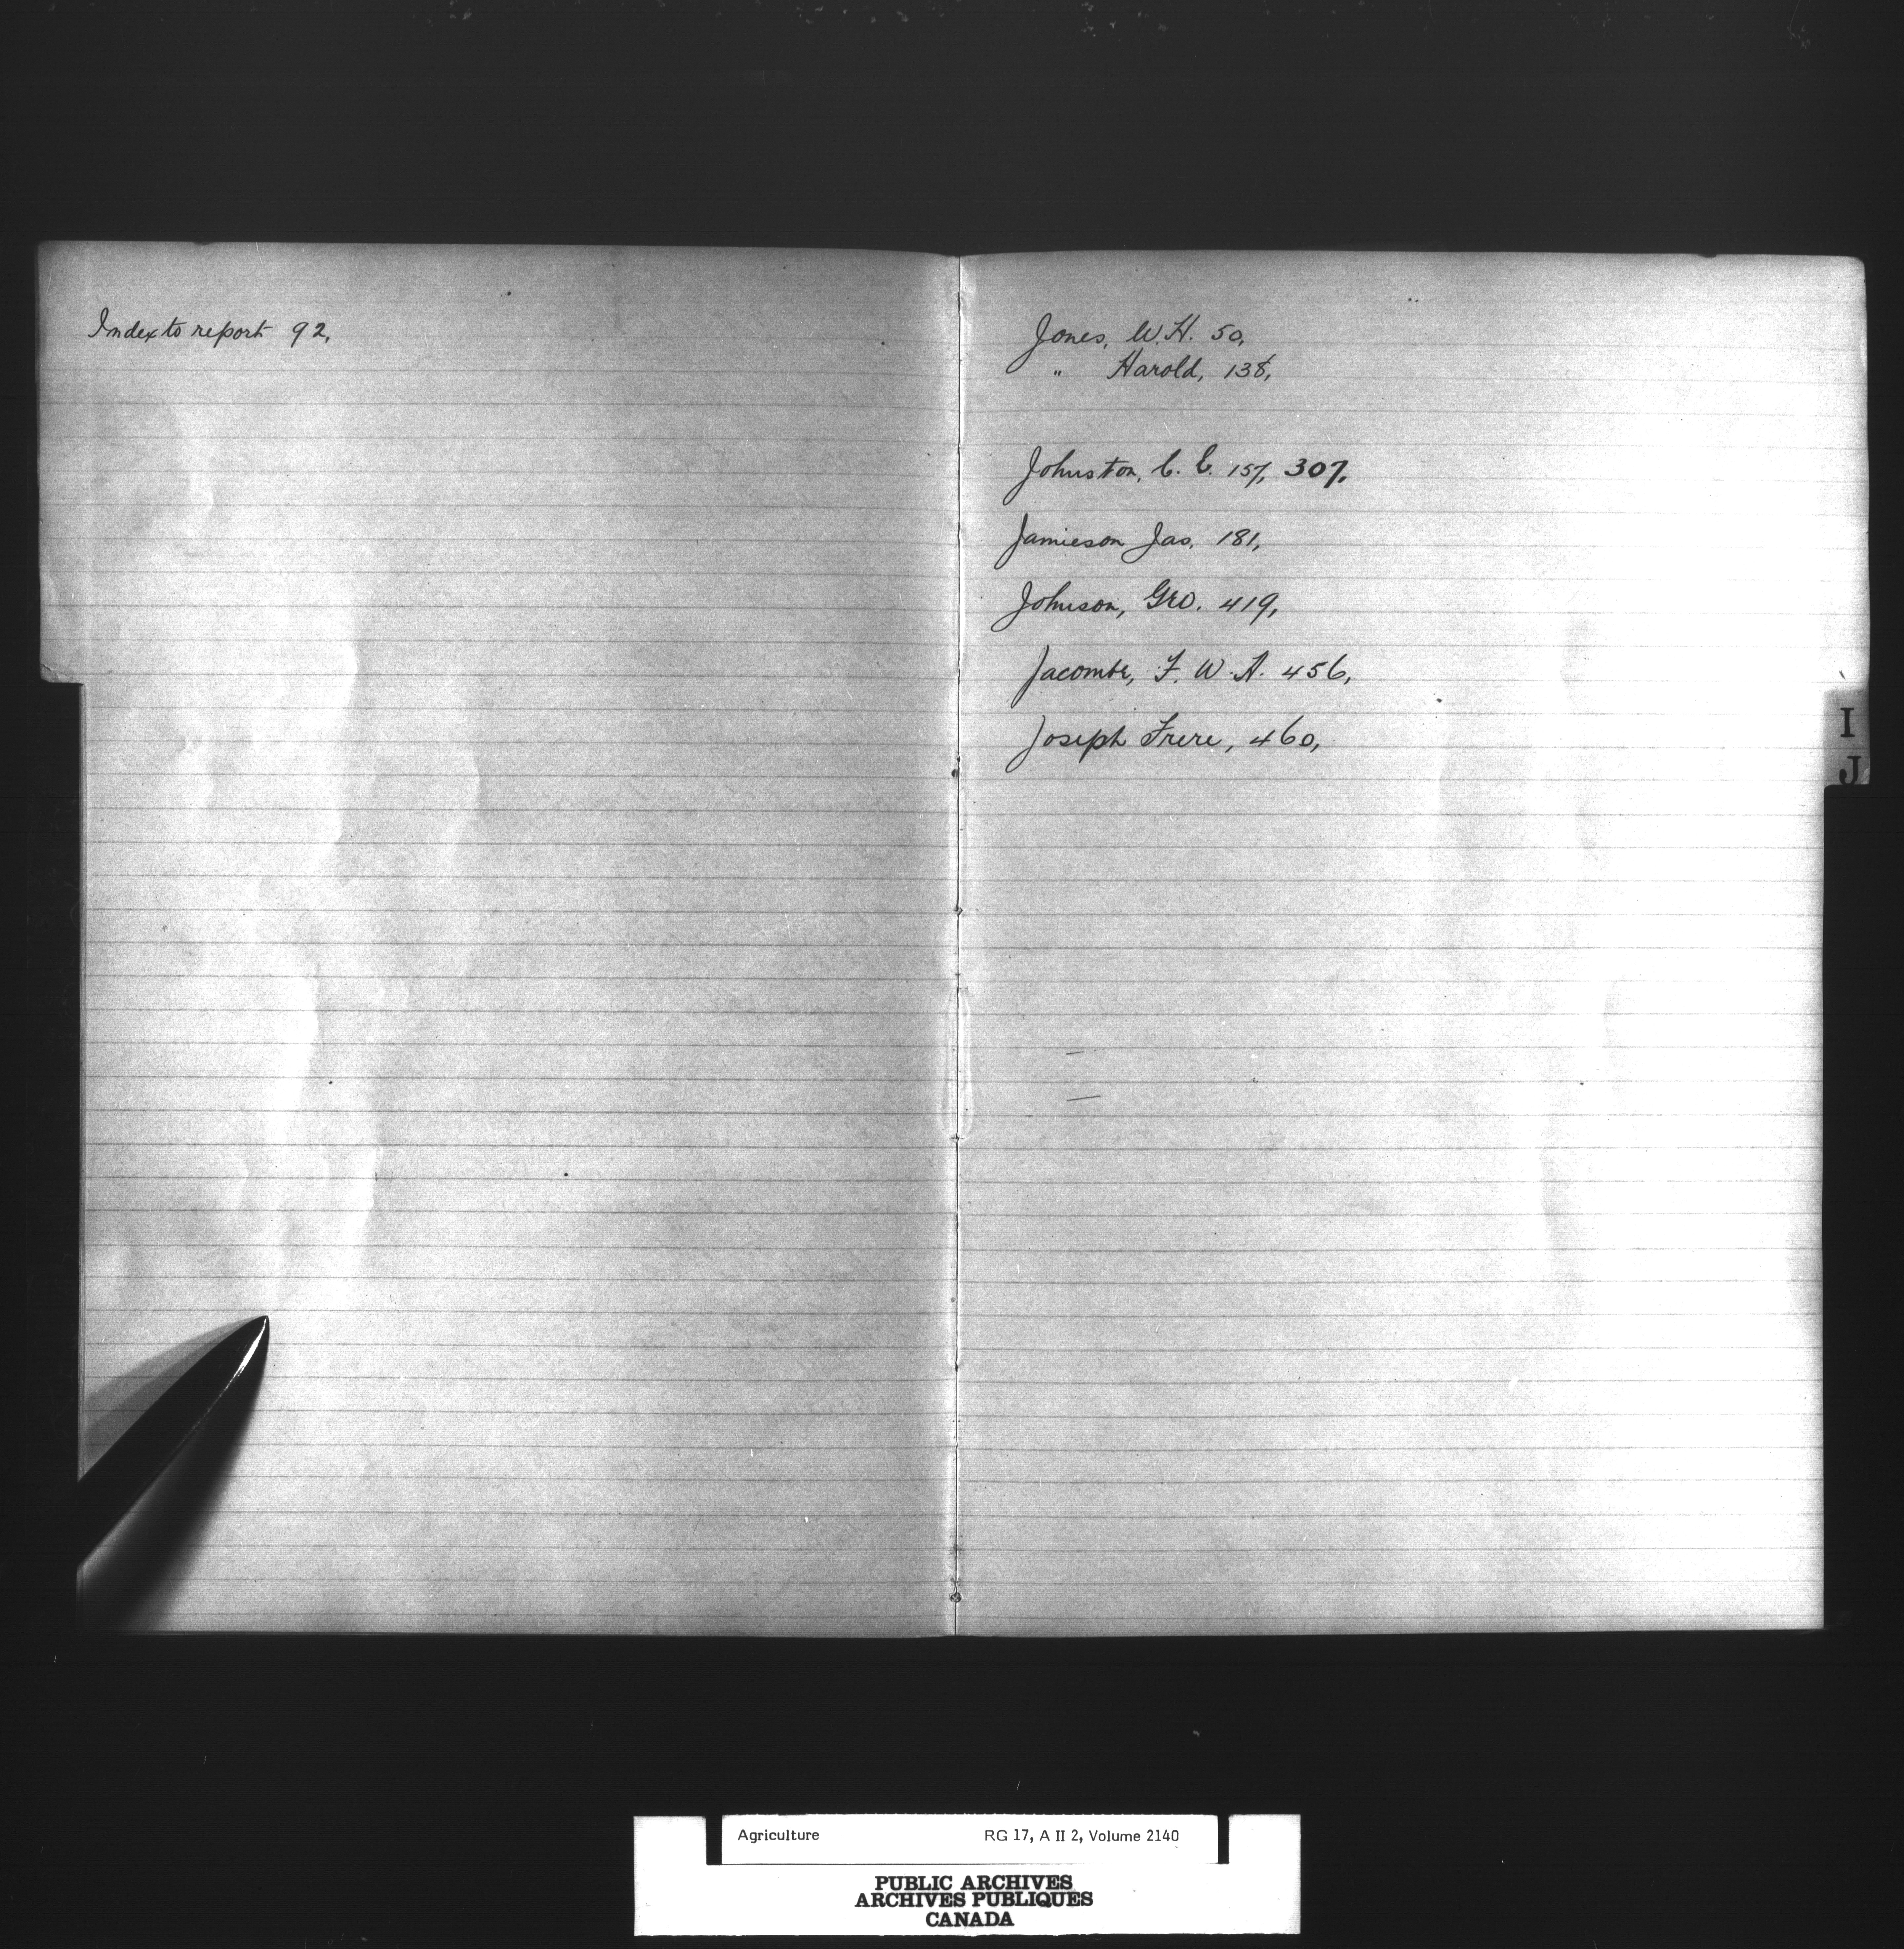 Index to report 92,
Jones, W. H. 50,
" Harold, 138,
Johnston, C. C. 157, 307,
Jamieson Jas. 181,
Johnson, Geo. 419,
Jacombe, F. W. H. 456,
Joseph Frere, 460,
I
J
Agriculture RG 17, A II 2, Volume 2140
PUBLIC ARCHIVES
ARCHIVES PUBLIQUES
CANADA